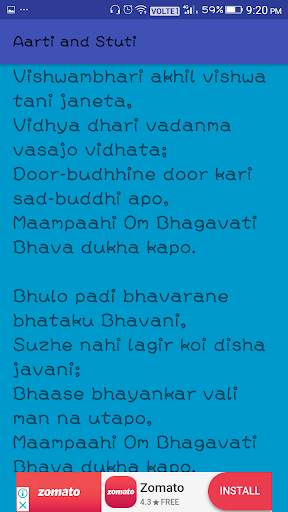 VOLTE1 59% 9:20 PM
Aarti and Stuti
Vishwambhari akhil vishwa
tani janeta,
Vidhya dhari vadanma
vasajo vidhata;
Door-budhhine door kari
sad-buddhi apo,
Maampaahi Om Bhagavati
Bhava dukha kapo.
Bhulo padi bhavarane
bhataku Bhavani,
Suzhe nahi lagir koi disha
javani;
Bhaase bhayankar vali
man na utapo,
Maampaahi Om Bhagavati
Bhava dukha kapo.
zomato
zomato
Zomato
4.3★FREE
INSTALL